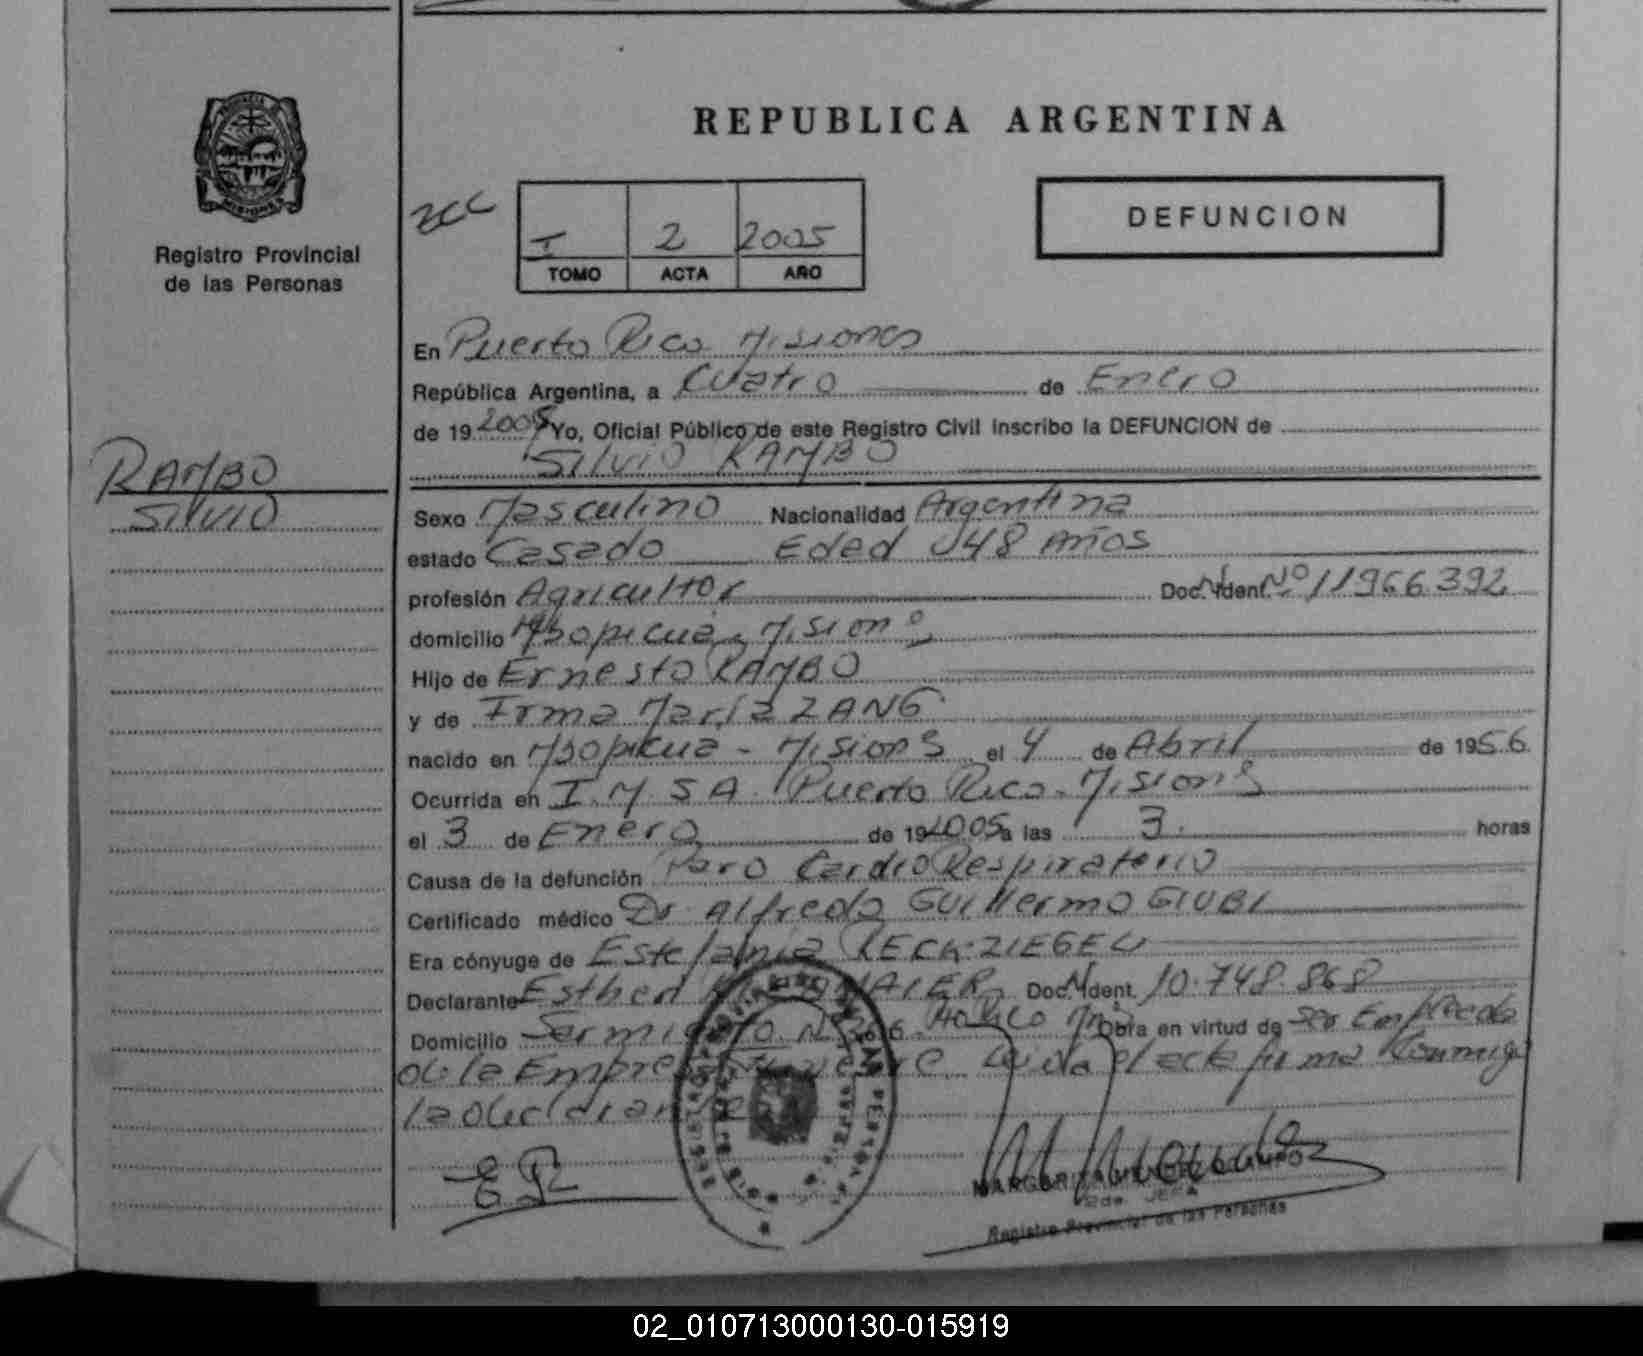 REPUBLICA ARGENTINA
PROVINCIA DE
MISIONES
Registro Provincial
de las Personas
I 2 2005
TOMO ACTA AÑO
DEFUNCION
En Puerto Rico Misiones
República Argentina, a Cuatro de Enero
de 19 2005 Yo, Oficial Público de este Registro Civil inscribo la DEFUNCION de
Silvio RAMBO
RAMBO
Silvio
Sexo Masculino Nacionalidad Argentina
estado Casado Edad 48 Años
profesión Agricultor Doc. Ident. Nº 11966.392
domicilio Misiones
Hijo de Ernesto RAMBO
y de Irma María ZANG
nacido en - Misions el 4 de Abril de 1956.
Ocurrida en I.M.S.A. Puerto Rico - Misions
el 3 de Enero de 19 2005 a las 3. horas
Causa de la defunción Paro CardioRespiratorio
Certificado médico Dr. Alfredo Guillermo GIUBI
Era cónyuge de Estefania RECKZIEGEL
Declarante Esther MAIER Doc. Ident. 10.748.868
Domicilio Nº en virtud de ser Empleada
de la Empresa el acta firma Conmigo
la declarante
2da. JEFA
Registro Provincial de las Personas
02_010713000130-015919